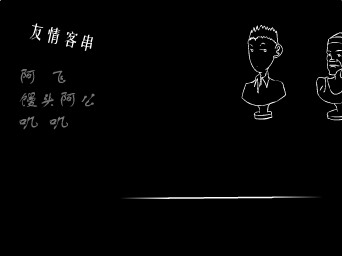 友情客串
阿飞
馒头阿公
叽叽